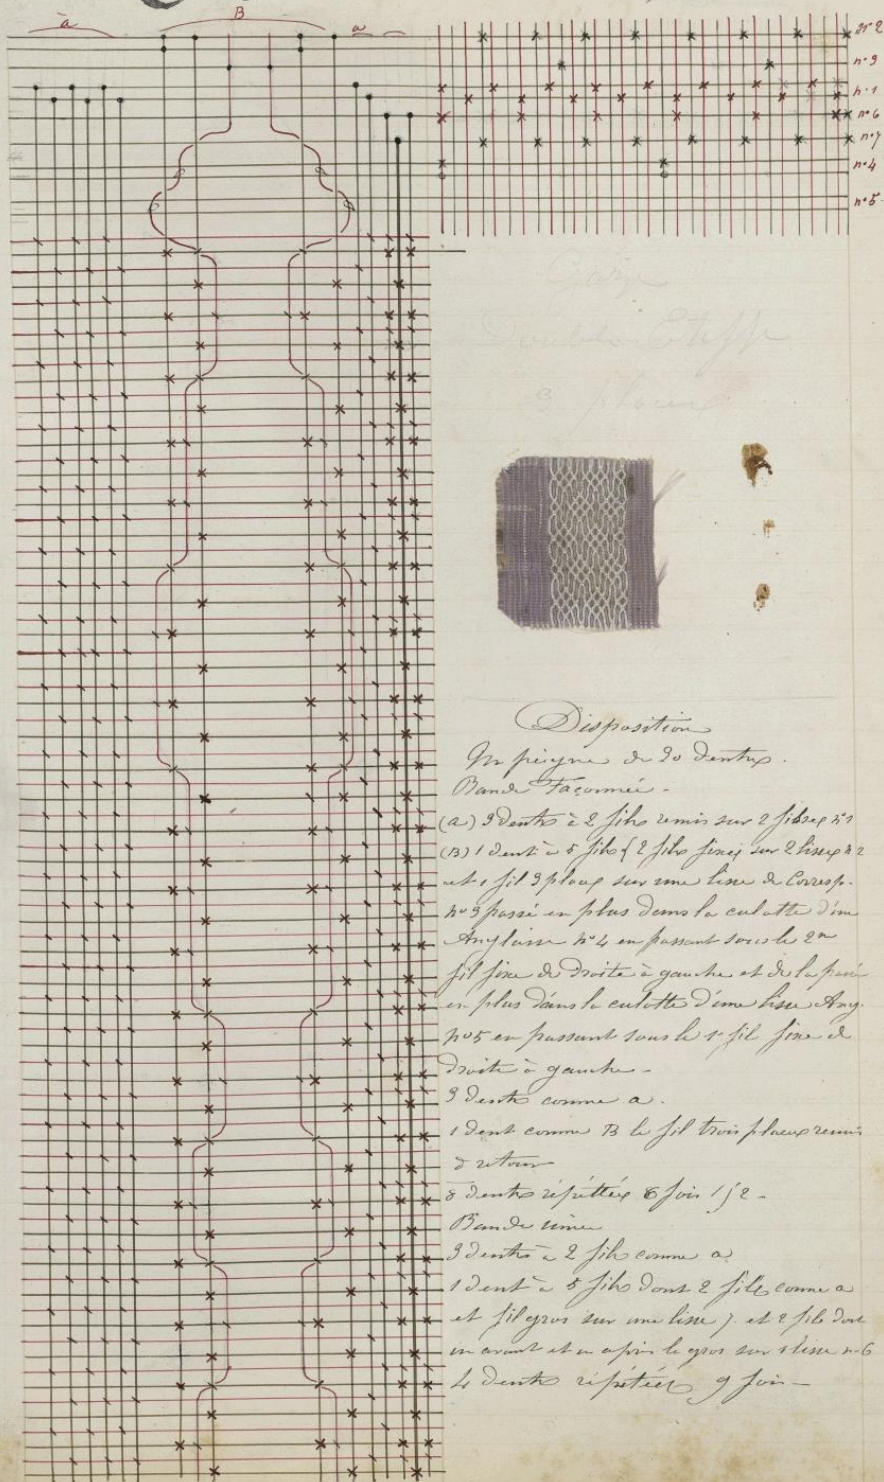 a
B
a
n° 2
n° 3
n° 1
n° 6
n° 7
n° 4
n° 5
Gaze
Double Etoffe
3 places
Disposition
Un peigne de 30 dents.
Bande Façonnée.
(a) 3 dents à 2 fils remis sur 2 lisses n° 1
(B) 1 dent à 5 fils { 2 fils fixes sur 2 lisses n° 2
et 1 fil 3 places sur une lisse de Corresp.
n° 3 passé en plus dans la culotte d'une
Anglaise n° 4 en passant sous le 2me
fil fixe de droite à gauche et de la passé
en plus dans la culotte d'une lisse Ang.
n° 5 en passant sous le 1r fil fixe de
droite à gauche -
3 dents comme a.
1 dent comme B le fil trois places remis
à retour
8 dents répétées 6 fois 1/2 -
Bande unie
3 dents à 2 fils comme a
1 dent à 5 fils dont 2 fils comme a
et fil gros sur une lisse 7 et 2 fils dont
un avant et un après le gros sur 1 lisse n° 6
4 dents répétées 9 fois -